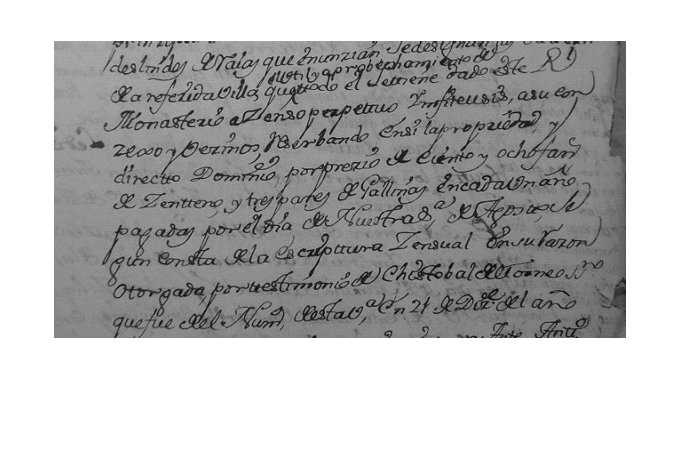 deslindes de raias que enunzian
de la referida villa, cuio util y aprobechamiento de todo el se ttiene dado este Rl
Monasterio a Zenso perpettuo Imfiteusis, a su con
zexo y Vezinos, Reserbando en si la propriedad, y
directto Dominio, por prezio de ciento y ocho fan
de Zentteno, y tres pares de Gallinas en cada un año
pagadas por el dia de Nuestra Sa de Agosto, se
gun consta de la escripttura Zensual en su razon
Otorgada, por testimonio de Chistobal de Torneo ssno
que fue del Numo, de esta va, en 24 de Dizre del año